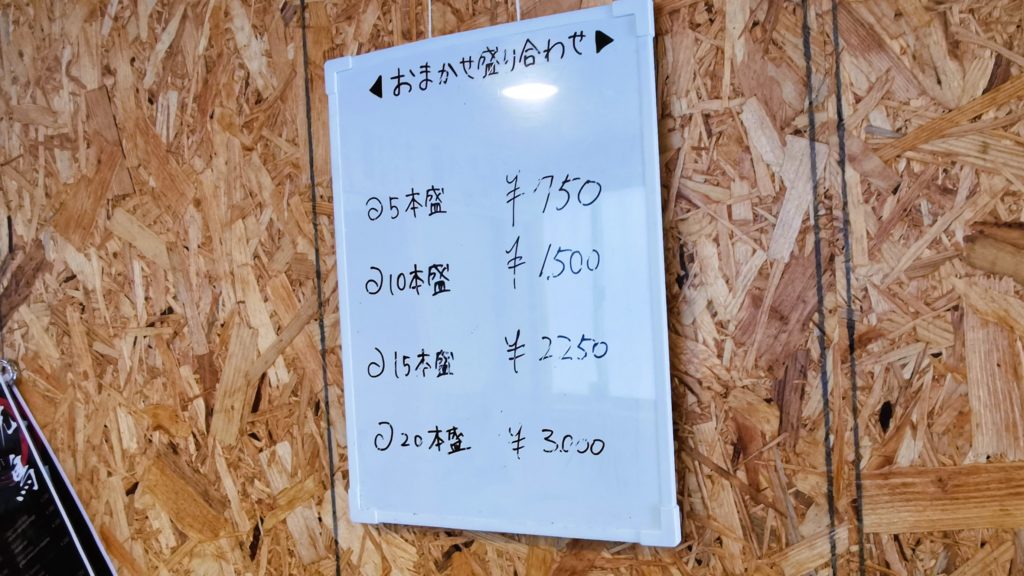 ◀おまかせ盛り合わせ▶
⊘5本盛 ¥750
⊘10本盛 ¥1,500
⊘15本盛 ¥2250
⊘20本盛 ¥3,000